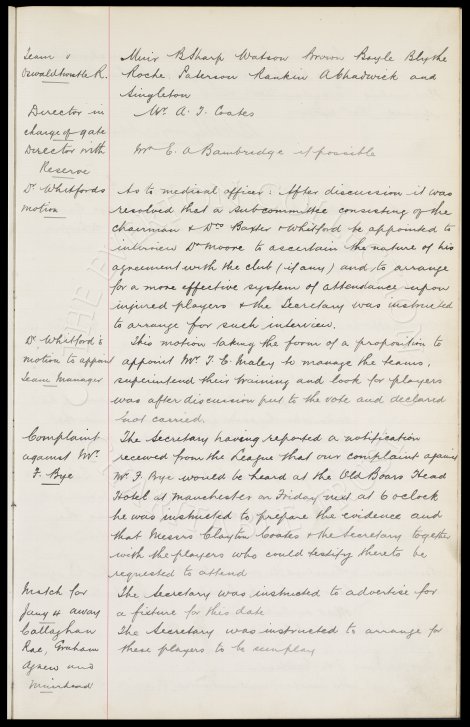 Team v
Oswaldtwistle R.
Muir B Sharp Watson Brown Boyle Blythe
Roche Paterson Rankin A Chadwick and
Singleton
Director in
charge of gate
Mr. A. T. Coates
Director with
Reserve
Mr E. A Bambridge if possible
Dr Whitfords
motion
As to medical officer: After discussion it was
resolved that a subcommittee consisting of the
chairman & Drs Baxter & Whitford be appointed to
interview Dr Moore to ascertain the nature of his
agreement with the club (if any) and to arrange
for a more effective system of attendance upon
injured players & the Secretary was instructed
to arrange for such interview.
Dr Whitford's
motion to appoint
Team Manager
This motion taking the form of a proposition to
appoint Mr. T. E. Maley to manage the teams,
superintend their training and look for players
was after discussion put to the vote and declared
not carried.
Complaint
against Mr
F. Bye
The Secretary having reported a notification
received from the League that our complaint against
Mr F. Bye would be heard at the Old Boars Head
Hotel at Manchester on Friday next at 6 oclock
he was instructed to prepare the evidence and
that Messrs Clayton Coates & the Secretary together
with the players who could testify thereto be
requested to attend
Match for
Jany 4 away
The Secretary was instructed to advertise for
a fixture for this date
Callaghan
Rae, Graham
Agnew and
Muirhead
The Secretary was instructed to arrange for
these players to be